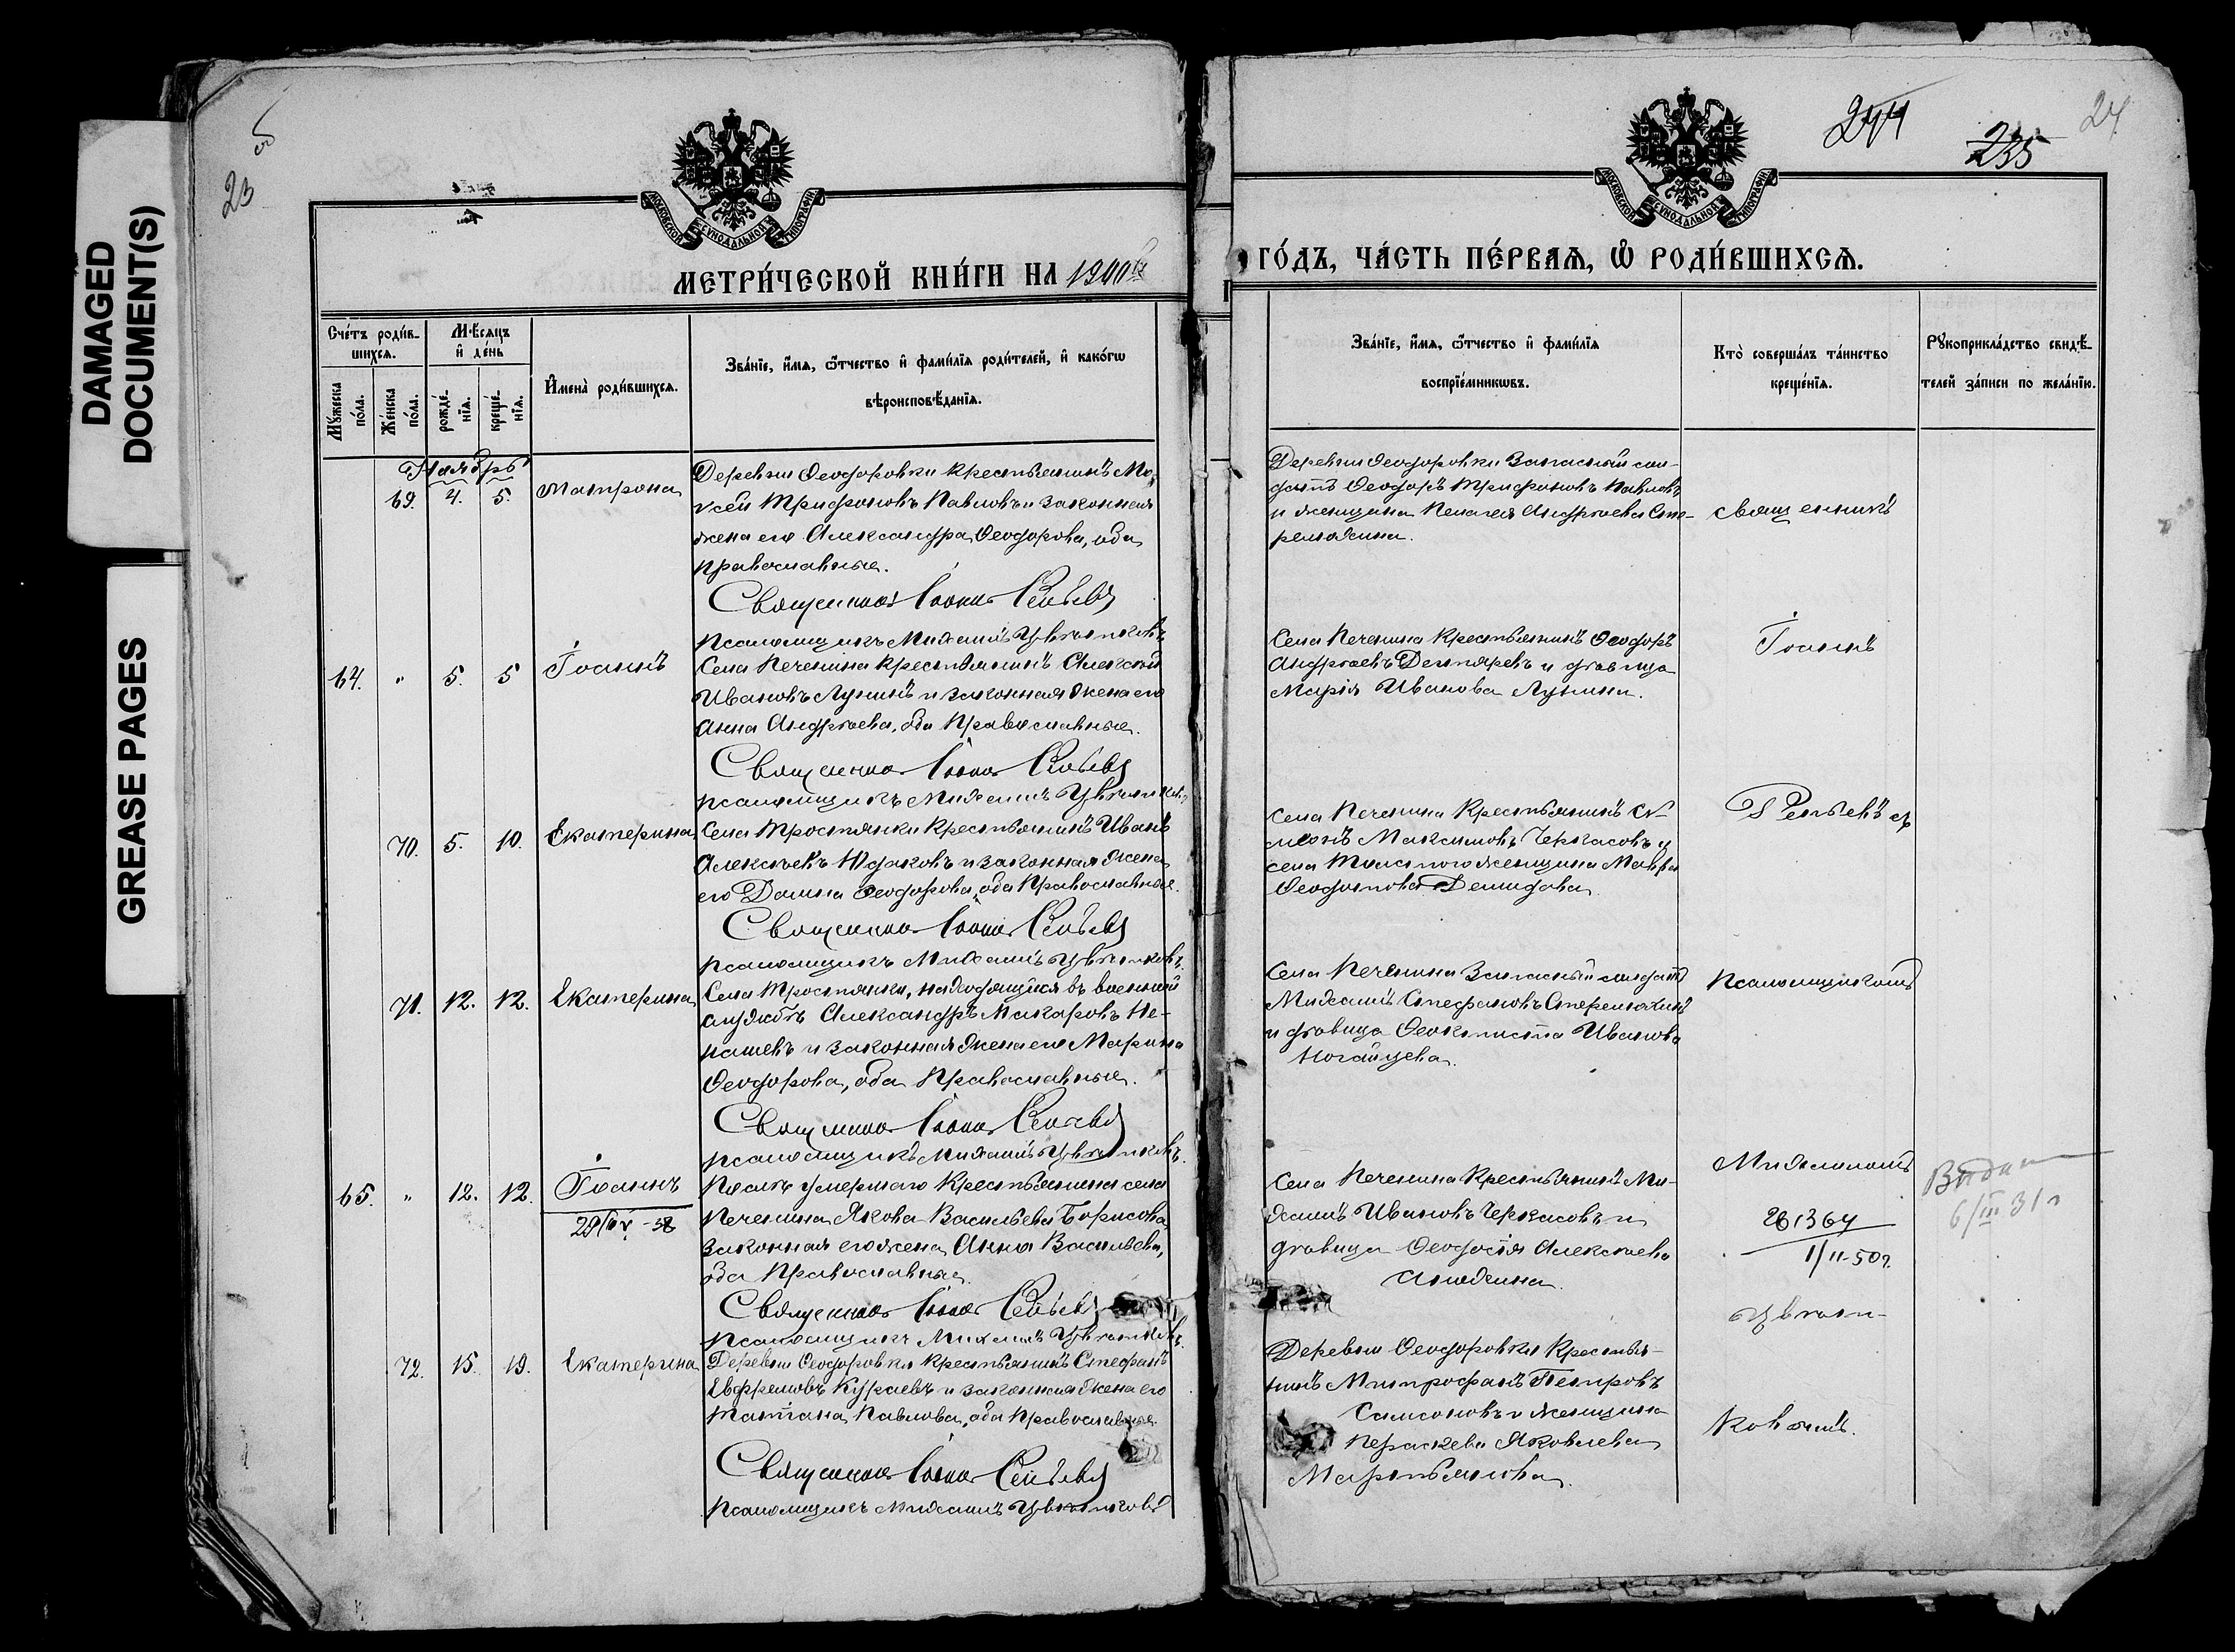 DAMAGED
DOCUMENT(S)
GREASE PAGES
23
об
МОСКОВСКОЙ СУНОДАЛЬНОЙ ТИПОГРАФІИ
МЕТРИ́ЧЕСКОЙ КНИ́ГИ НА
Сче́тъ роди́в-
шихся.
Мꙋ́жеска
по́ла.
Же́нска
по́ла.
Мѣ́сяцъ
и҆ де́нь
рожде́-
нїя.
креще́-
нїя.
И҆мена̀ роди́вшихся.
Зва́нїе, и҆́мя, ѻ҆́тчество и҆ фами́лїя роди́телей, и҆ како́гѡ
вѣроисповѣ́данїя.
Ноябрь
69. 4. 5. Матрона
Деревни Ѳеодоровки крестьянинъ Мо-
ѵсей Трифоновъ Павловъ и законная
жена его Александра Ѳеодорова, оба
православные.
Священник Іоанн
Псаломщикъ Михаилъ Цвѣтковъ
64. " 5. 5 Іоаннъ
Села Печенина крестьянинъ Алексѣй
Ивановъ Лунинъ и законная жена его
Анна Андреева, оба Православные.
Священник Іоанн
псаломщикъ Михаилъ Цвѣтковъ
70. 5. 10. Екатерина
Села Тростянки крестьянинъ Иванъ
Алексѣевъ Юдаковъ и законная жена
его Домна Ѳеодорова, оба Православные.
Священник Іоанн
псаломщикъ Михаилъ Цвѣтковъ.
71. 12. 12. Екатерина
Села Тростянки, находящійся въ военной
службѣ Александръ Макаровъ Не-
пашевъ и законная жена его Марина
Ѳеодорова, оба Православные.
Священник Іоанн
псаломщикъ Михаилъ Цвѣтковъ.
65. " 12. 12. Іоаннъ
Послѣ умершаго крестьянина села
Печенина Якова Васильева Борисова
законная его жена Анна Васильева,
оба Православные.
Священник Іоанн
псаломщикъ Михаилъ Цвѣтковъ.
72. 15. 19. Екатерина
Деревни Ѳеодоровки крестьянинъ Стефанъ
Евфремовъ Кураевъ и законная жена его
Татіана Павлова, оба Православные.
Священник Іоанн
псаломщикъ Михаилъ Цвѣтковъ
235
24
МОСКОВСКОЙ СУНОДАЛЬНОЙ ТИПОГРАФІИ
ГО́ДЪ, ЧА́СТЬ ПЕ́РВАЯ, Ѡ РОДИ́ВШИХСЯ.
Зва́нїе, и҆́мя, ѻ҆́тчество и҆ фами́лїя
воспрїе́мникѡвъ.
Кто̀ соверша́лъ та́инство
креще́нїя.
Рꙋкоприкла́дство свидѣ́-
телей за́писи по жела́нїю.
Деревни Ѳеодоровки Запасный сол-
датъ Ѳеодоръ Трифоновъ Павловъ
и женщина Пелагея Андреева Сте-
священникъ
Села Печенина крестьянинъ Ѳеодоръ
Андреевъ Дегтяревъ и дѣвица
Марія Иванова Лунина.
Іоаннъ
Села Печенина крестьянинъ Си-
меонъ Максимовъ Черкасовъ и
села женщина Мавра
Демидова
съ
Села Печенина Запасный солдатъ
Михаилъ Стефановъ
и дѣвица Ѳеоктиста Иванова
Ногайцева.
Псаломщикомъ
Села Печенина Крестьянинъ Ми-
хаилъ Ивановъ Черкасовъ и
дѣвица Ѳеодосія Алексѣева
Михаиломъ
261364
1/II-50г.
Выдан
6/III 31 г
Цвѣт-
Деревни Ѳеодоровки Крестья-
нинъ Митрофанъ Петровъ
Самсоновъ и женщина
Параскева Яковлева
Мартьянова.
ковымъ.